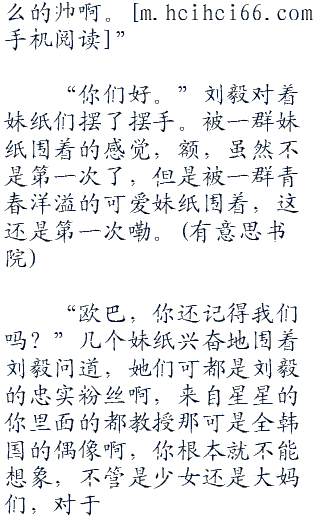 么的帅啊。[m.hcihci66.com
手机阅读]”
“你们好。”刘毅对着
妹纸们摆了摆手。被一群妹
纸围着的感觉，额，虽然不
是第一次了，但是被一群青
春洋溢的可爱妹纸围着，这
还是第一次嘞。(有意思书
院)
“欧巴，你还记得我们
吗？”几个妹纸兴奋地围着
刘毅问道，她们可都是刘毅
的忠实粉丝啊，来自星星的
你里面的都教授那可是全韩
国的偶像啊，你根本就不能
想象，不管是少女还是大妈
们，对于